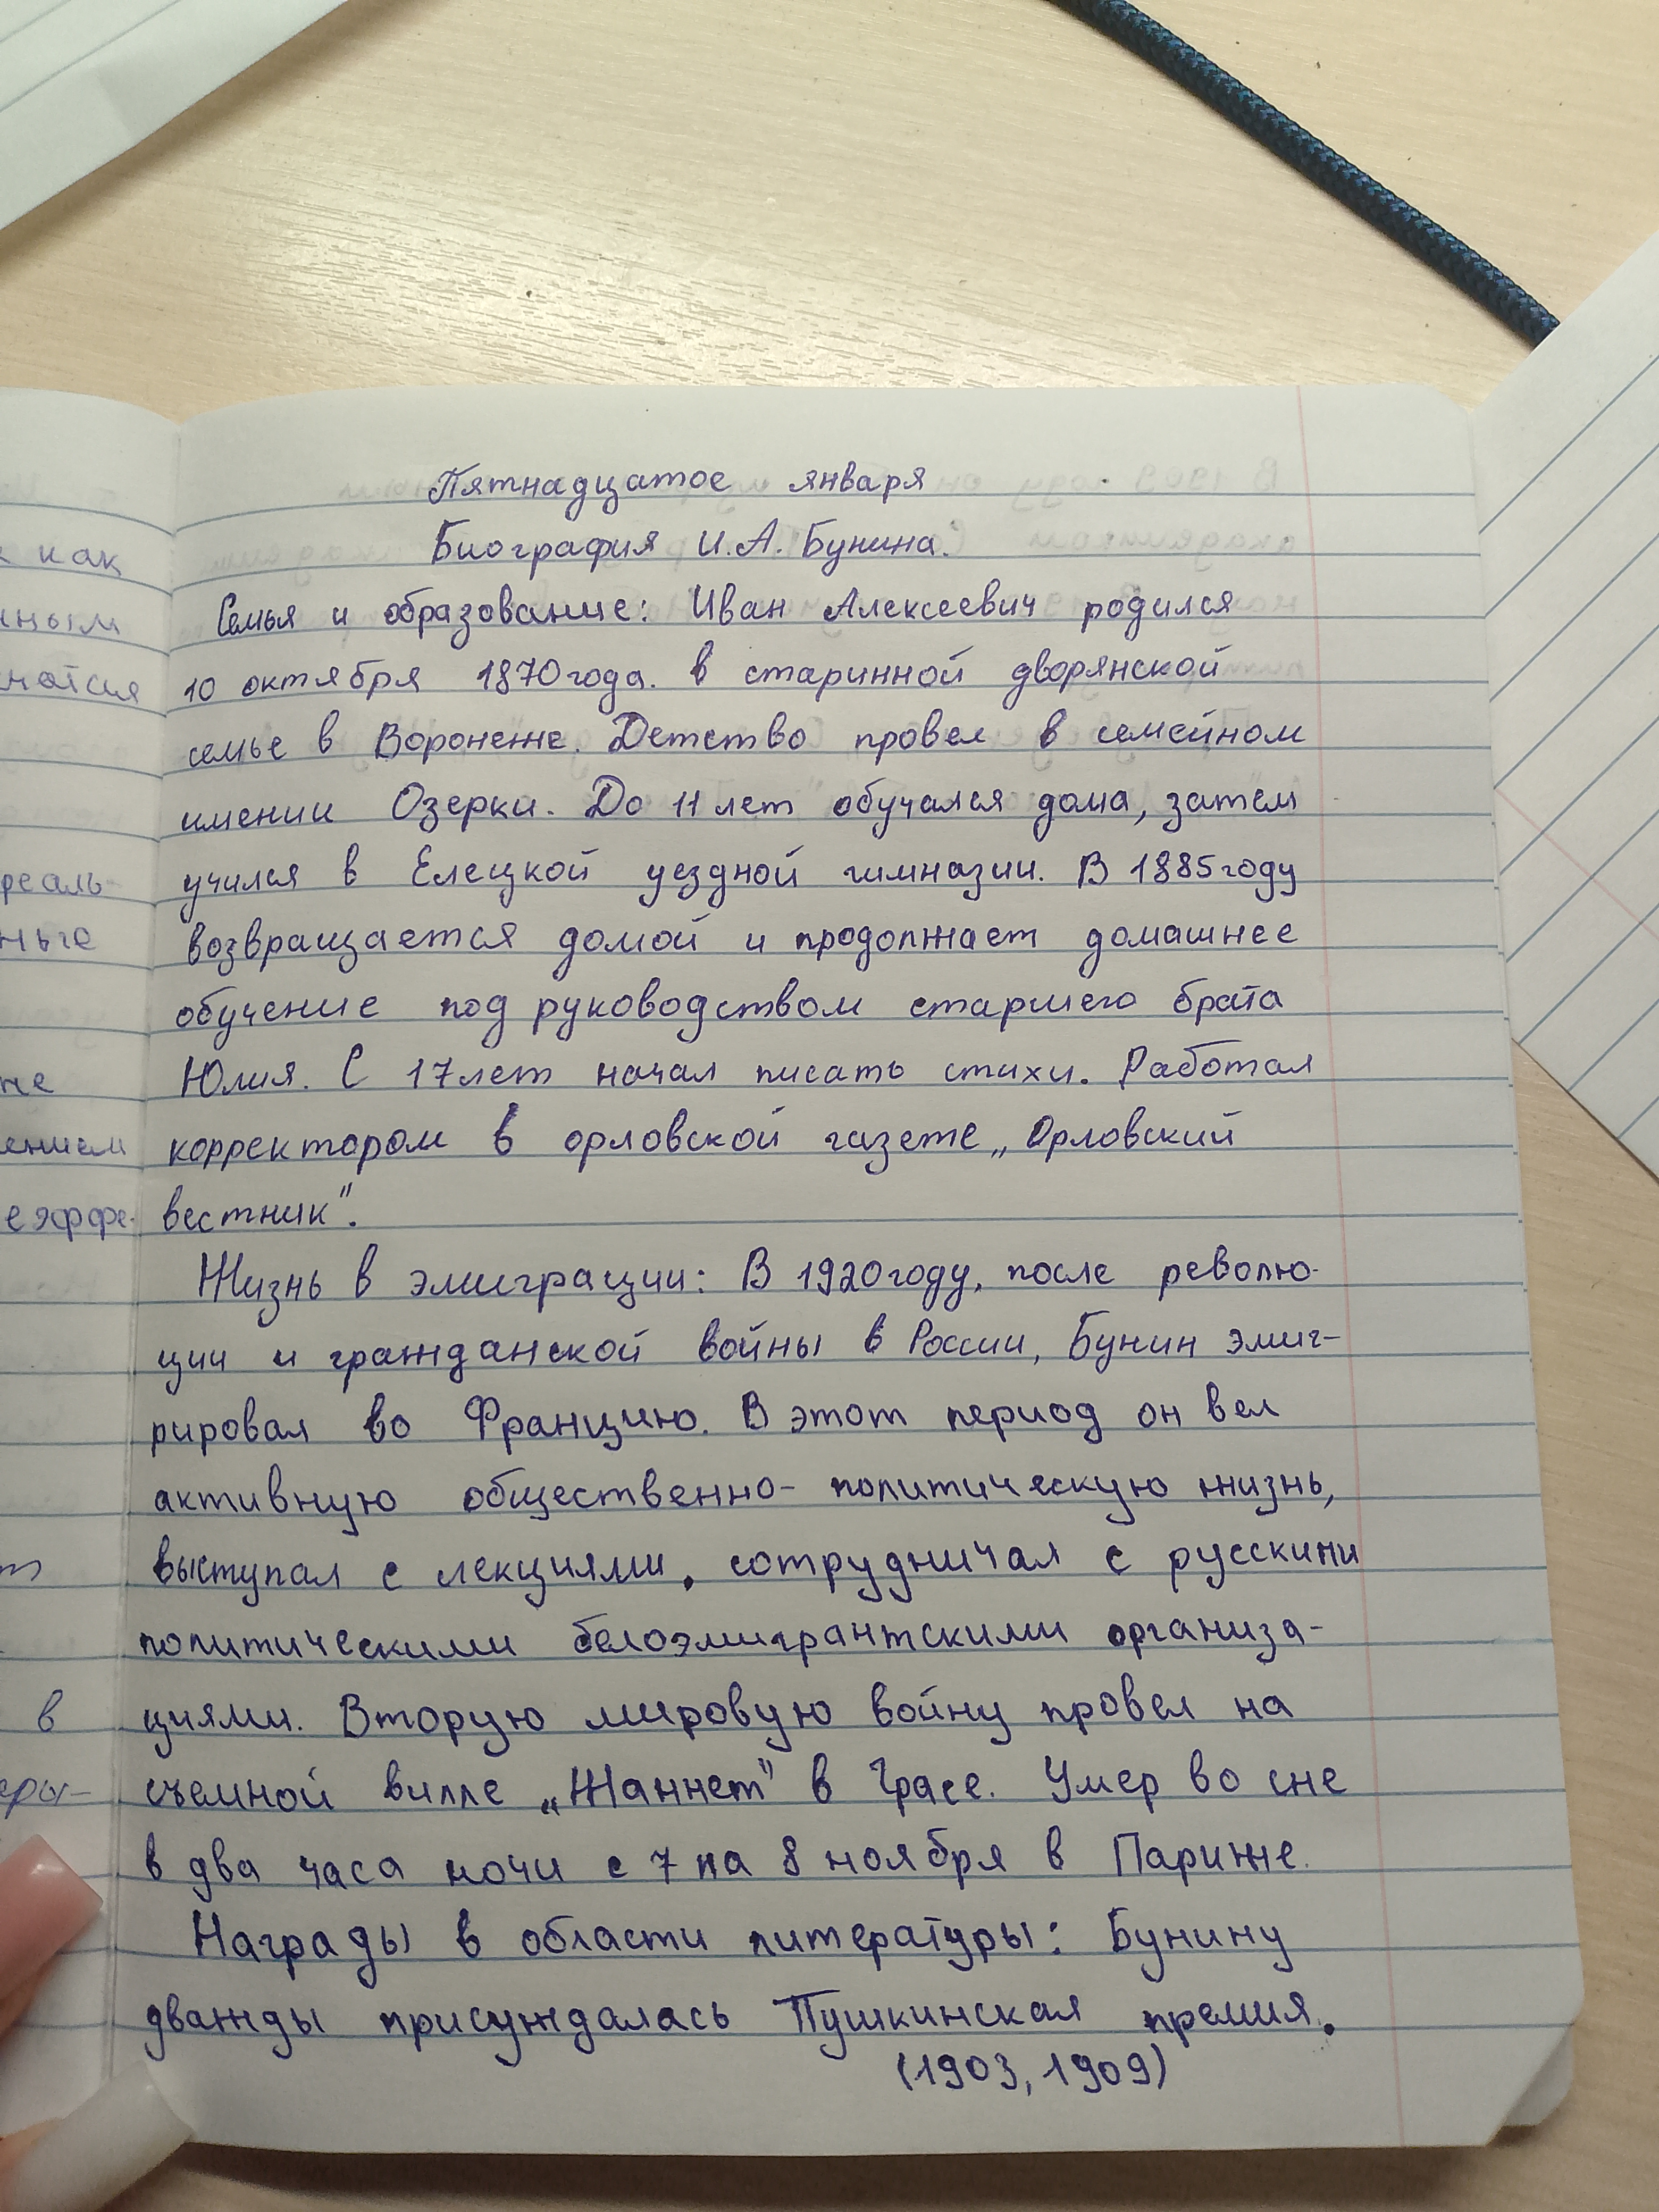 Пятнадцатое января
Биография И.А. Бунина.
Семья и образование: Иван Алексеевич родился
10 октября 1870 года. в старинной дворянской
семье в Воронеже. Детство провел в семейном
имении Озерки. До 11 лет обучался дома, затем
учился в Елецкой уездной гимназии. В 1885 году
возвращается домой и продолжает домашнее
обучение под руководством старшего брата
Юлия. С 17 лет начал писать стихи. Работал
корректором в орловской газете „Орловский
вестник".
Жизнь в эмиграции: В 1920 году, после револю-
ции и гражданской войны в России, Бунин эмиг-
рировал во Францию. В этот период он вел
активную общественно-политическую жизнь,
выступал с лекциями, сотрудничал с русскими
политическими белоэмигрантскими организа-
циями. Вторую мировую войну провел на
съемной вилле „Жаннет" в Грасе. Умер во сне
в два часа ночи с 7 на 8 ноября в Париже.
Награды в области литературы: Бунину
дважды присуждалась Пушкинская премия.
(1903, 1909)
как
ным
реаль-
ные
же
ением
еэффе-
в